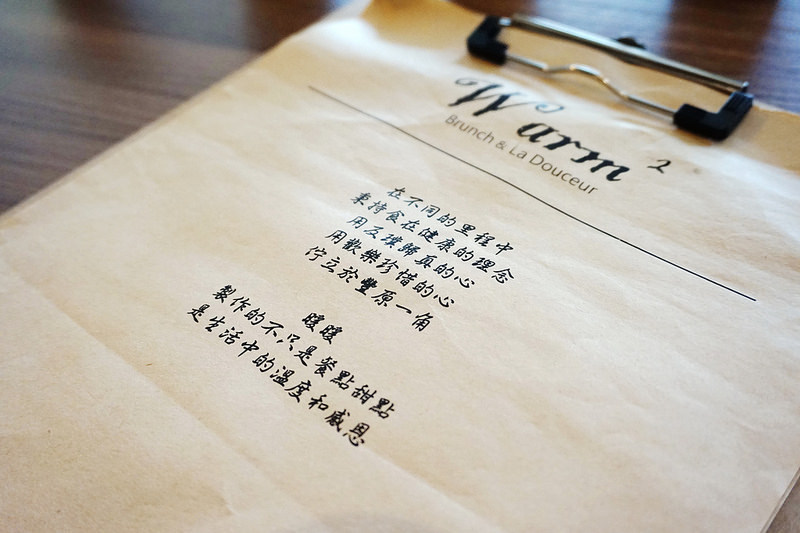 Warm 2
Brunch & La Douceur
在不同的里程中
秉持食在健康的理念
用反璞歸真的心
用歡樂珍惜的心
佇立於豐原一角
暖暖
製作的不只是餐點甜點
是生活中的溫度和感恩